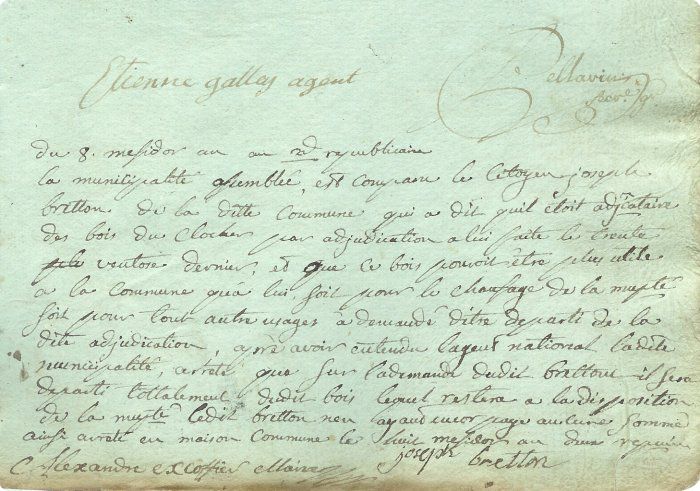 Etienne gallay agent
du 8. mesidor an an 2d republicaine
la municipalité assemblée, est comparu le Citoyen joseph
bretton de la ditte Commune qui a dit quil étoit adjcataire
des bois du Clocher par adjudication a lui faite le trente
ventose dernier, et que ce bois pouvoit être plus utile
a la Commune qu'a lui soit pour le chaufage de la mupté
soit pour tout autre usages a demandé d'être departi de la
dite adjudication, après avoir entendu l'agent national ladite
municipalité, arrete que sur la demande dudit brettont il sera
departi tottalement dudit bois lequel restera a la disposition
de la mupté ledit bretton nen ayant encor paye aucune somme
ausi arreté en maison Commune le huit mesidor an deux
Alexandre excoffier Maire joseph bretton